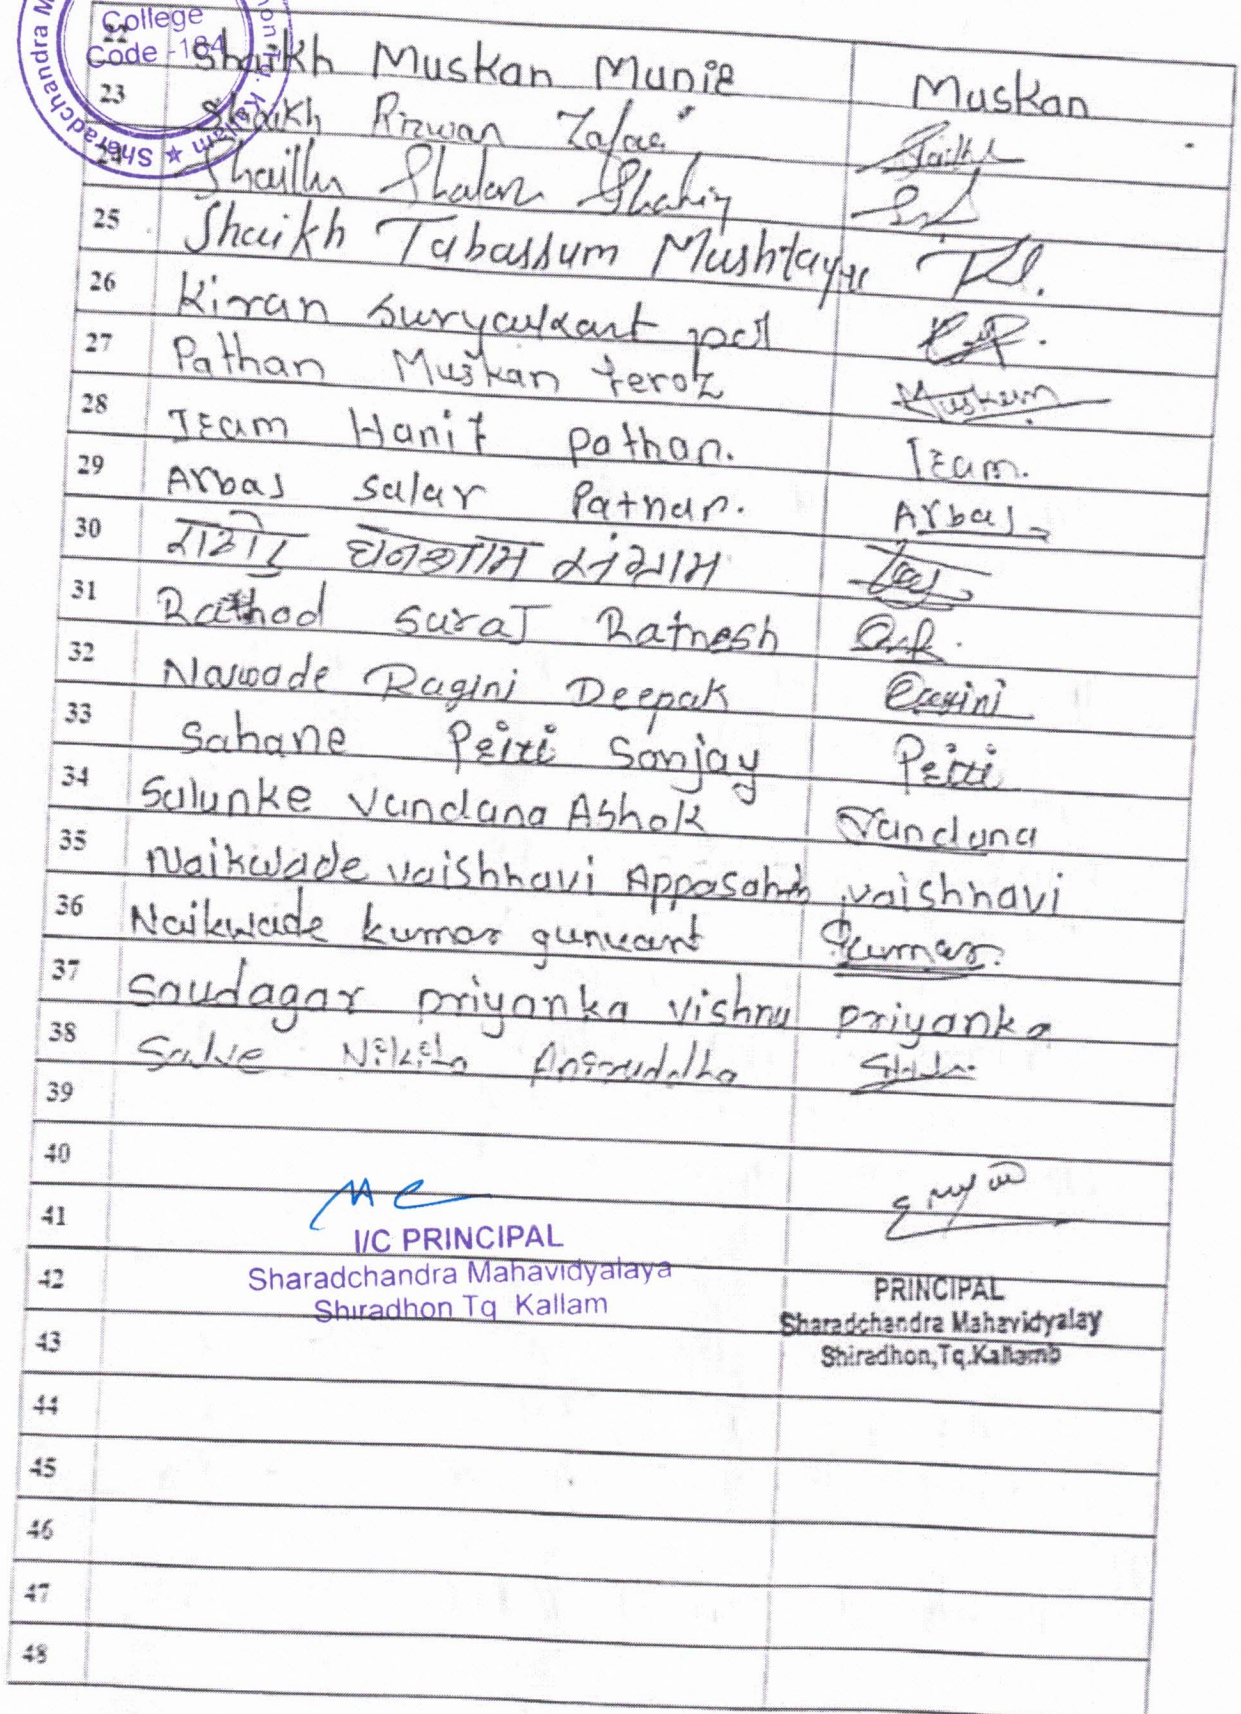 College
Code -184
Sharadchandra M
22 Shaikh Muskan Munir Muskan
23 Shaikh Rizwan Zafar Shaikh
24 Shaikh
25 Shaikh Tabassum Mushtaque
26 Kiran Suryakant
27 Pathan Muskan feroz Muskan
28 Izam Hanif pathan. Izam.
29 Arbaj salar Pathan. Arbaj
30 राठोड घनशाम संग्राम
31 Rathod suraJ Ratnesh
32 Nawade Ragini Deepak Ragini
33 Sahane Peiti Sanjay Peiti
34 Salunke vandana Ashok Vandana
35 Naikwade vaishnavi Appasaheb vaishnavi
36 Naikwade kumar gunvant kumar.
37 Saudagar priyanka vishnu priyanka
38 Salve Nikita Aniruddha
39
40
41
I/C PRINCIPAL
42 Sharadchandra Mahavidyalaya PRINCIPAL
Shiradhon Tq Kallam Sharadchandra Mahavidyalay
43 Shiradhon,Tq.Kallamb
44
45
46
47
48